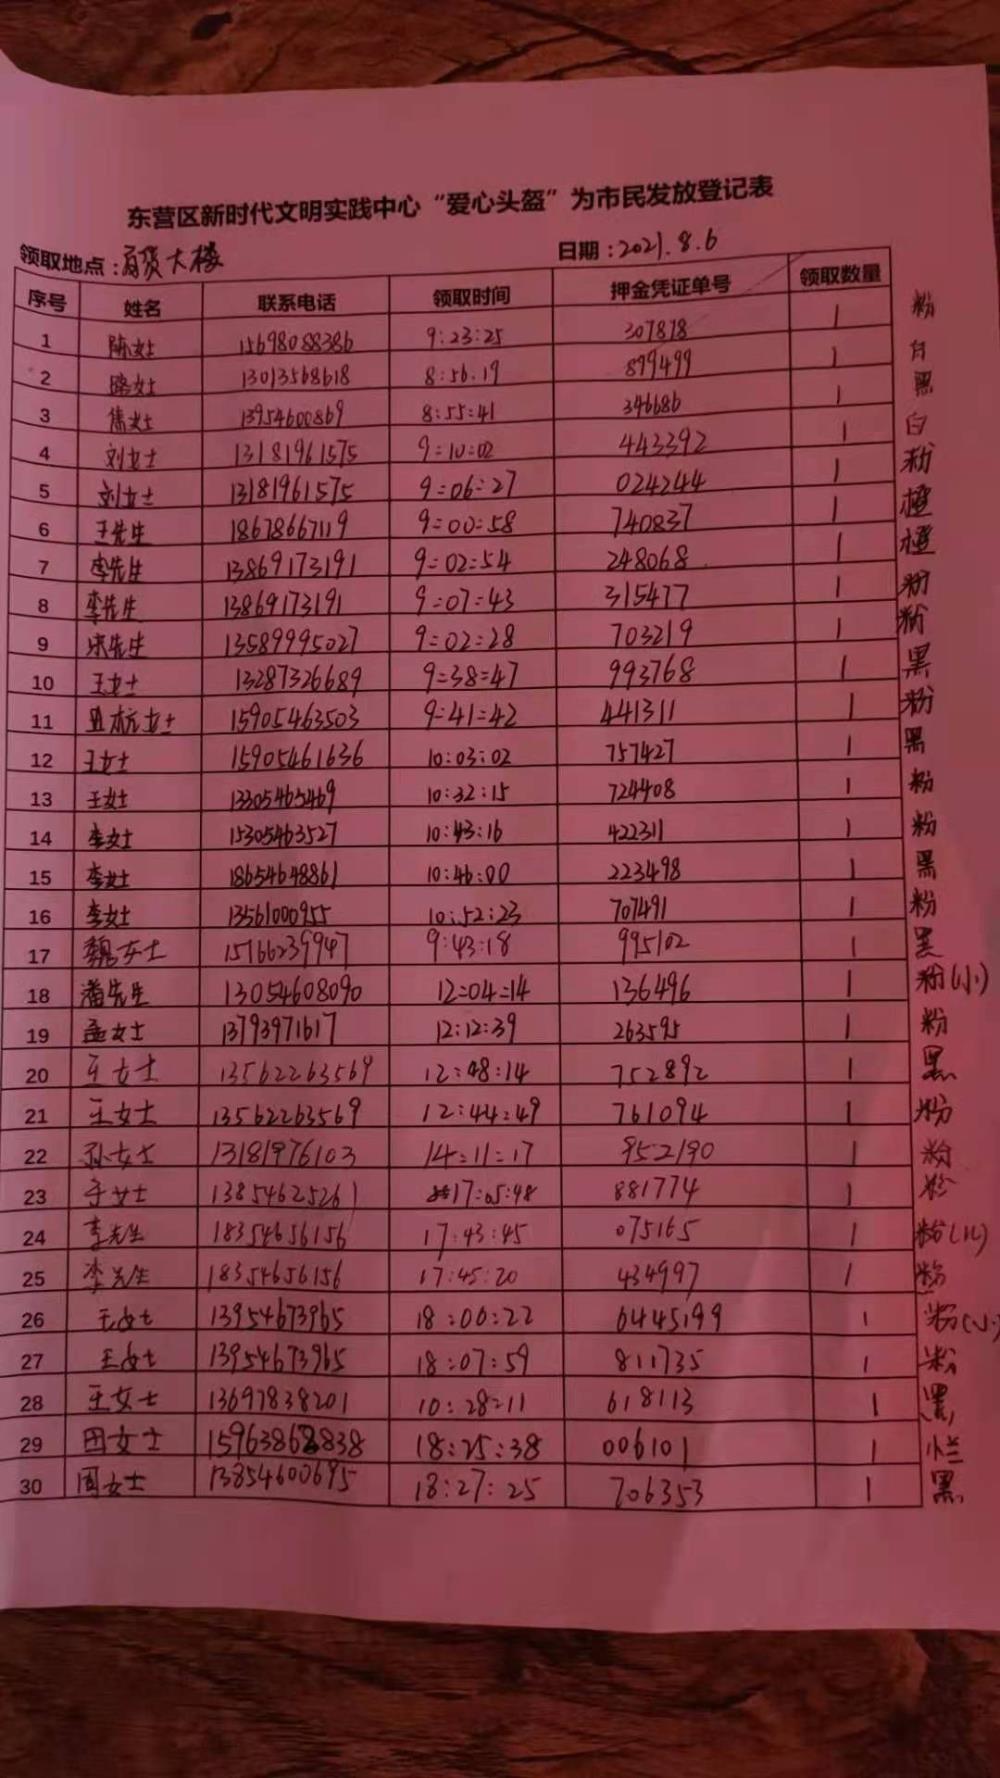 东营区新时代文明实践中心“爱心头盔”为市民发放登记表
领取地点：百货大楼 日期：2021.8.6
序号 姓名 联系电话 领取时间 押金凭证单号 领取数量
1 陈女士 15698088386 9:23:25 307878 1 粉
2 路女士 13013568618 8:56.19 899499 1 白
3 焦女士 13954600869 8:55:41 346686 1 黑
4 刘女士 13181961575 9:10:02 443392 1 白
5 刘女士 13181961575 9:06:27 024244 1 粉
6 王先生 18678667119 9:00:58 740837 1 橙
7 李先生 13869173191 9:02:54 248068 1 橙
8 李先生 13869173191 9:07:43 315477 1 粉
9 宋先生 13589995027 9:02:28 703219 1 粉
10 王女士 13287326689 9:38:47 993768 1 黑
11 女士 15905463503 9:41:42 441311 1 粉
12 王女士 15905461636 10:03:02 757427 1 黑
13 王女士 13305465469 10:32:15 724408 1 粉
14 李女士 15305463527 10:43:16 422311 1 粉
15 李女士 18654648861 10:46:00 223498 1 黑
16 李女士 13561000955 10:52:23 707491 1 粉
17 魏女士 15766239947 9:43:18 995102 1 黑
18 潘先生 13054608090 12:04:14 136496 1 粉(小)
19 孟女士 13793971617 12:12:39 263595 1 粉
20 王女士 13562263569 12:08:14 752892 1 黑
21 王女士 13562263569 12:44:49 761094 1 粉
22 孙女士 13181976103 14:11:17 952190 1 粉
23 于女士 13854625261 17:05:48 881774 1 粉
24 李先生 18354656156 17:43:45 075165 1 粉(小)
25 李先生 18354656156 17:45:20 434997 1 粉
26 王女士 13954673965 18:00:22 6445199 1 粉(小)
27 王女士 13954673965 18:07:59 811735 1 粉
28 王女士 13697838201 10:28:11 618113 1 黑
29 田女士 15963868838 18:25:38 006101 1
30 周女士 13854600695 18:27:25 706353 1 黑